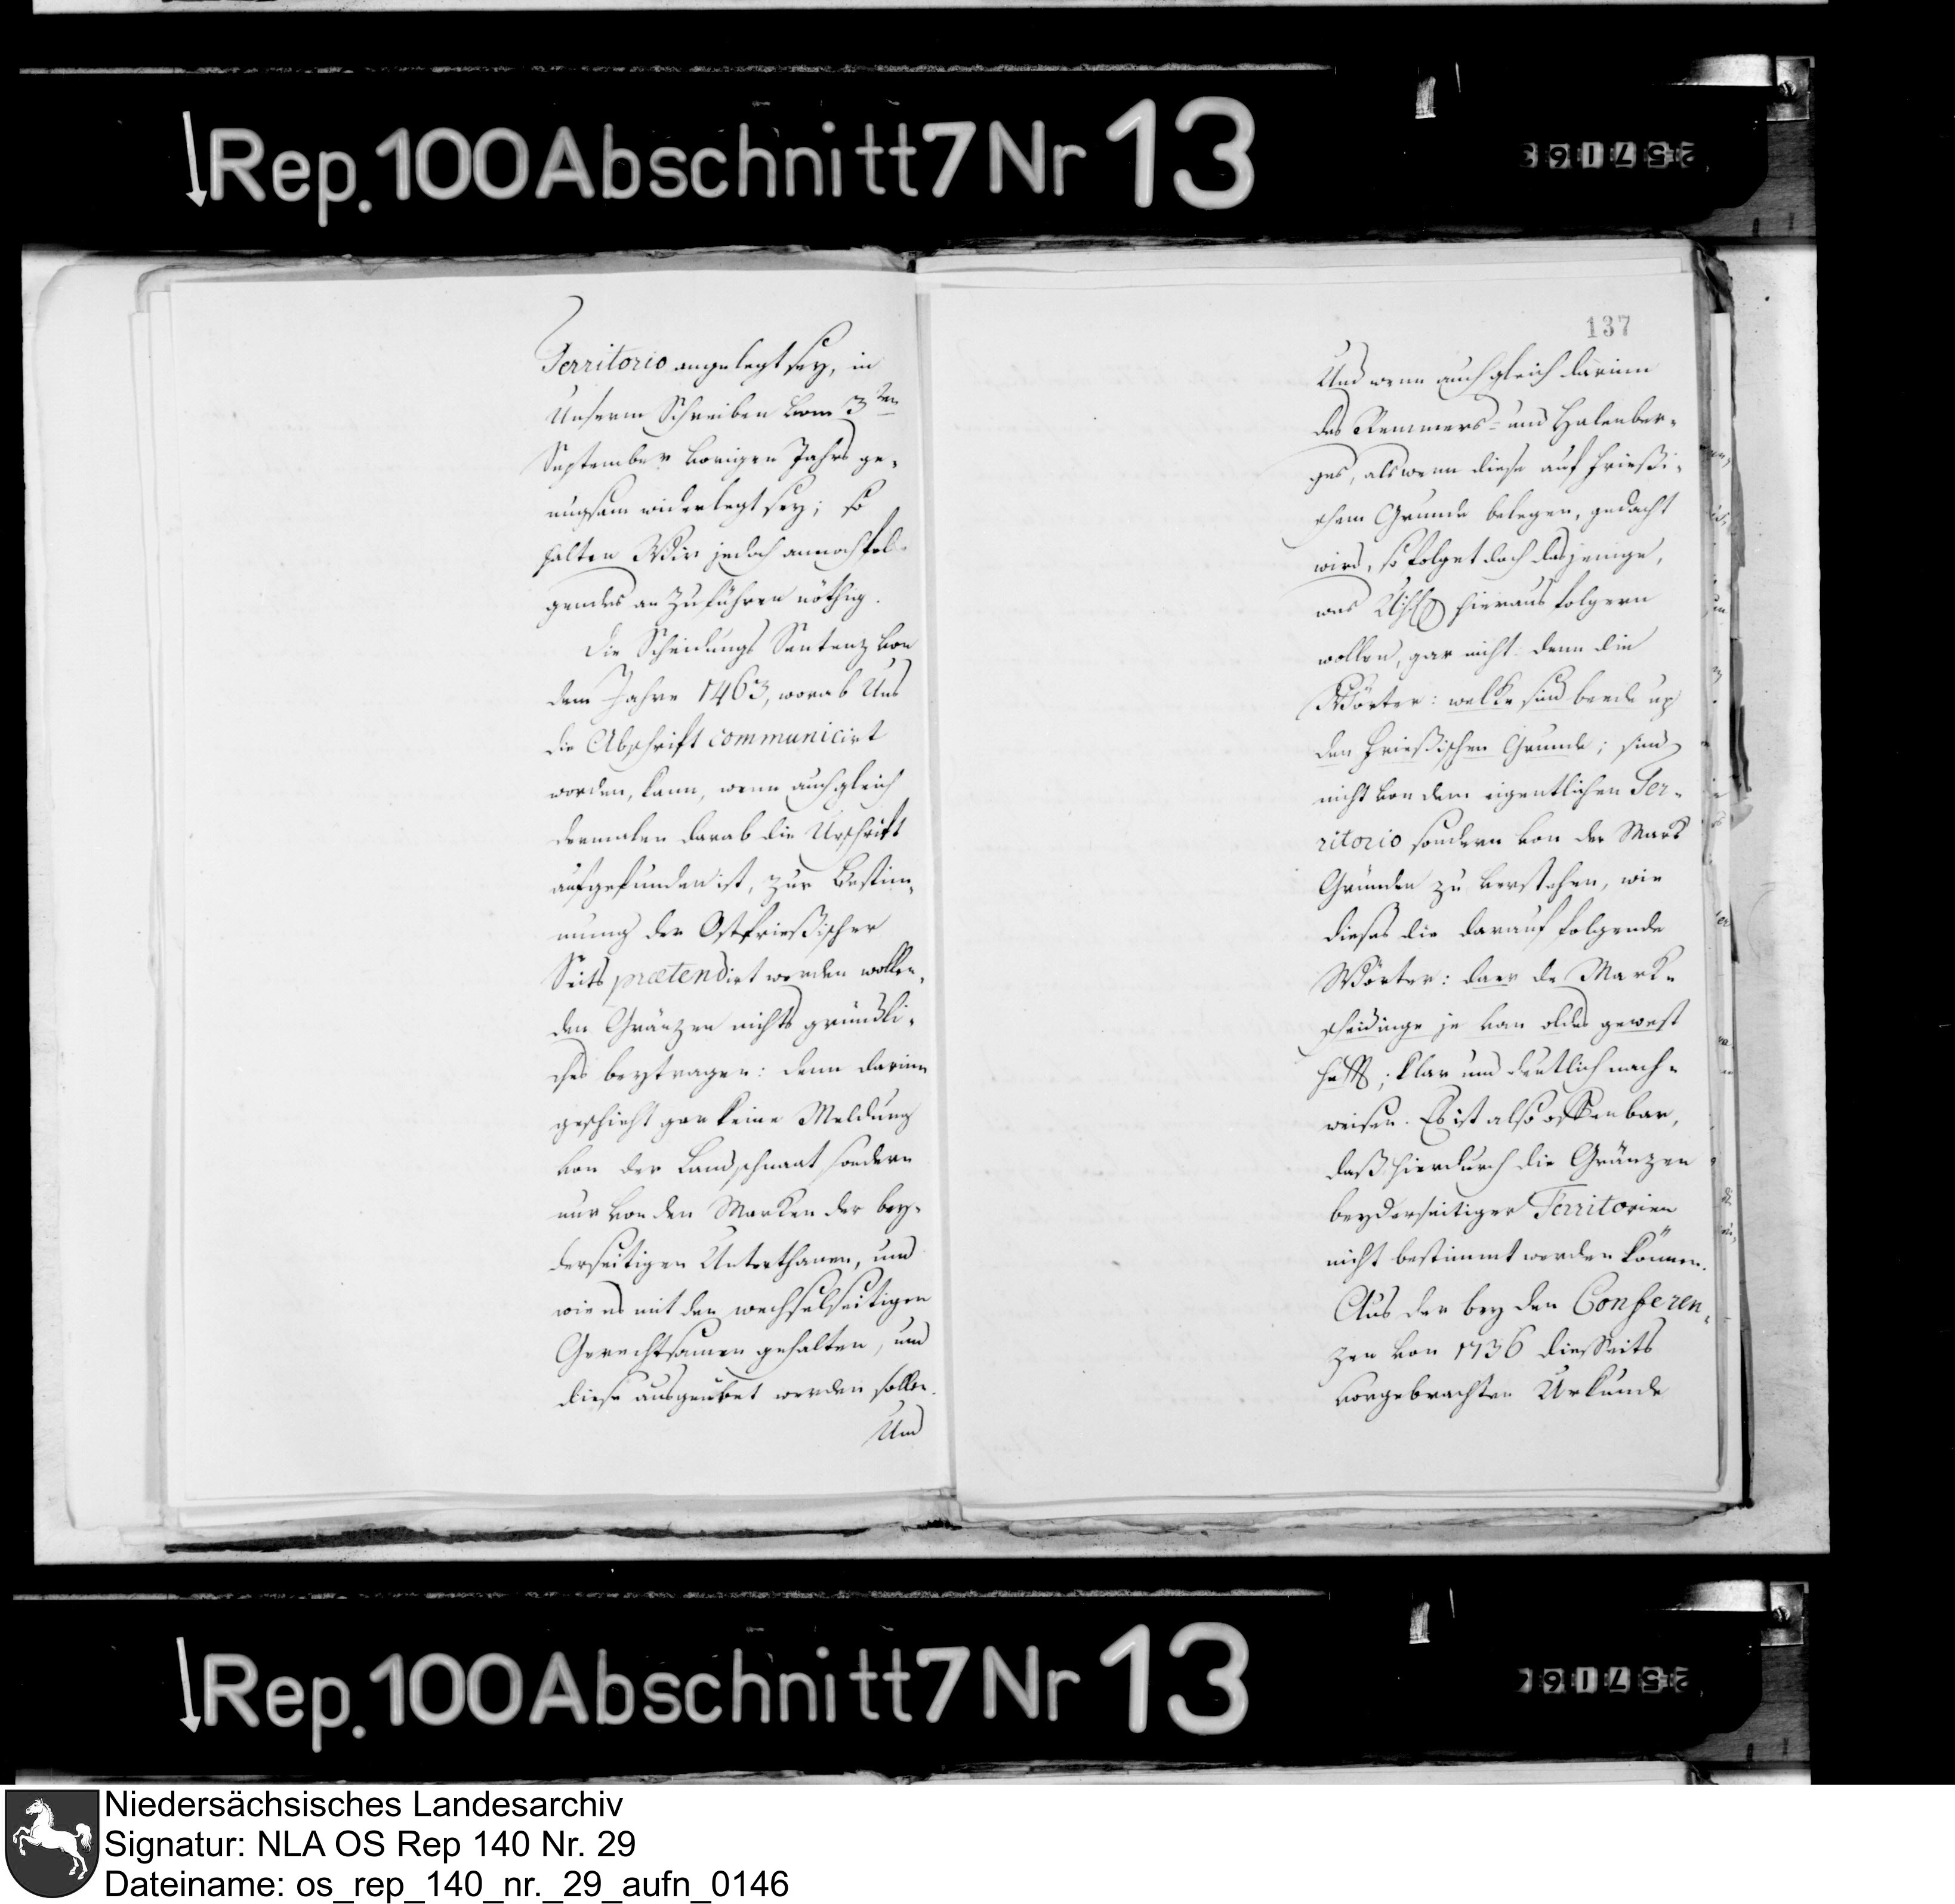 Rep. 100 Abschnitt 7 Nr 13
Territorio angelegt sey, in
Unserm Schreiben vom 3ten
September vorigen Jahrs ge-
nugsam widerlegt sey; so
halten Wir jedoch annoch fol-
gendes anzuführen nöthig.
Die Scheidungs Sentenz von
dem Jahre 1463, worab Uns
die Abschrift communicirt
worden, kann, wenn auch gleich
dermalen darab die Urschrift
aufgefunden ist, zur Bestim-
mung der Ostfrießischer
Seits prætendirt werden wollen-
den Gränzen nichts gründli-
ches beytragen: denn darinn
geschieht gar keine Meldung
von der Landschnaat sondern
nur von den Marken der bey-
derseitigen Unterthanen, und
wie es mit den wechselseitigen
Gerechtsamen gehalten, und
diese ausgeübet werden sollen.
Und
137
Und wenn auch gleich darinn
des Remmers- und Halenber-
ges, als wenn diese auf Frießi-
schem Grunde belegen, gedacht
wird, so folget doch dasjenige,
was hieraus folgern
wollen, gar nicht: denn die
Wörter: welke sind beede up
den Frießischen Grunde; sind
nicht von dem eigentlichen Ter-
ritorio sondern von der Mark
Gründen zu verstehen, wie
dieses die darauf folgende
Wörter: daer de Mark-
scheidinge je van oldes gewest
; klar und deutlich nach-
weisen. Es ist also offenbar,
daß hierdurch die Gränzen
beyderseitiger Territorien
nicht bestimmt werden können.
Aus der bey den Conferen-
zen von 1736 diesseits
vorgebrachten Urkunde
Rep. 100 Abschnitt 7 Nr 13
Niedersächsisches Landesarchiv
Signatur: NLA OS Rep 140 Nr. 29
Dateiname: os_rep_140_nr._29_aufn_0146